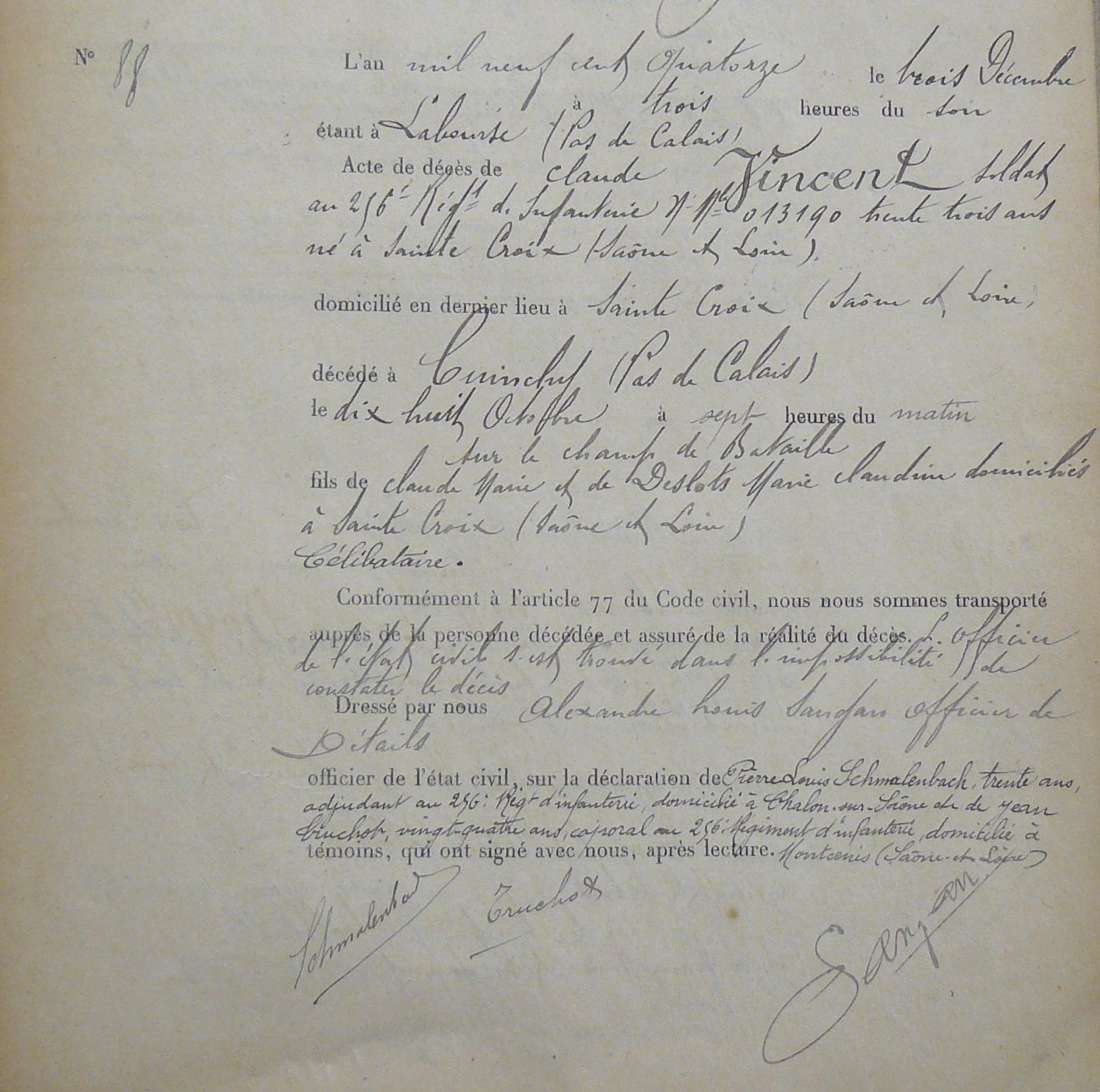 N° 88
L'an mil neuf cent Quatorze le trois Décembre
à trois heures du soir
étant à Labourse (Pas de Calais)
Acte de décès de claude Vincent soldat
au 256e Régt d'Infanterie Nº Mle 013190 trente trois ans
né à Sainte Croix (Saône et Loire).
domicilié en dernier lieu à Sainte Croix (Saône et Loire)
décédé à Cuinchy (Pas de Calais)
le dix huit Octobre à sept heures du matin
sur le champ de Bataille
fils de claude Marie et de Deslots Marie claudine domiciliés
à Sainte Croix (Saône et Loire)
Célibataire.
Conformément à l'article 77 du Code civil, nous nous sommes transporté
auprès de la personne décédée et assuré de la réalité du décès. L'officier
de l'état civil s'est trouvé dans l'impossibilité de
constater le décès
Dressé par nous Alexandre Louis Sanjan officier de
Détails
officier de l'état civil, sur la déclaration de Pierre Louis Schmalenbach, trente ans,
adjudant au 256e Régt d'infanterie, domicilié à Chalon-sur-Saône et de Jean
Truchot, vingt-quatre ans, caporal au 256e Régiment d'infanterie, domicilié à
témoins, qui ont signé avec nous, après lecture. Montcenis (Saône-et-Loire)
Schmalenbach Truchot Sanjan